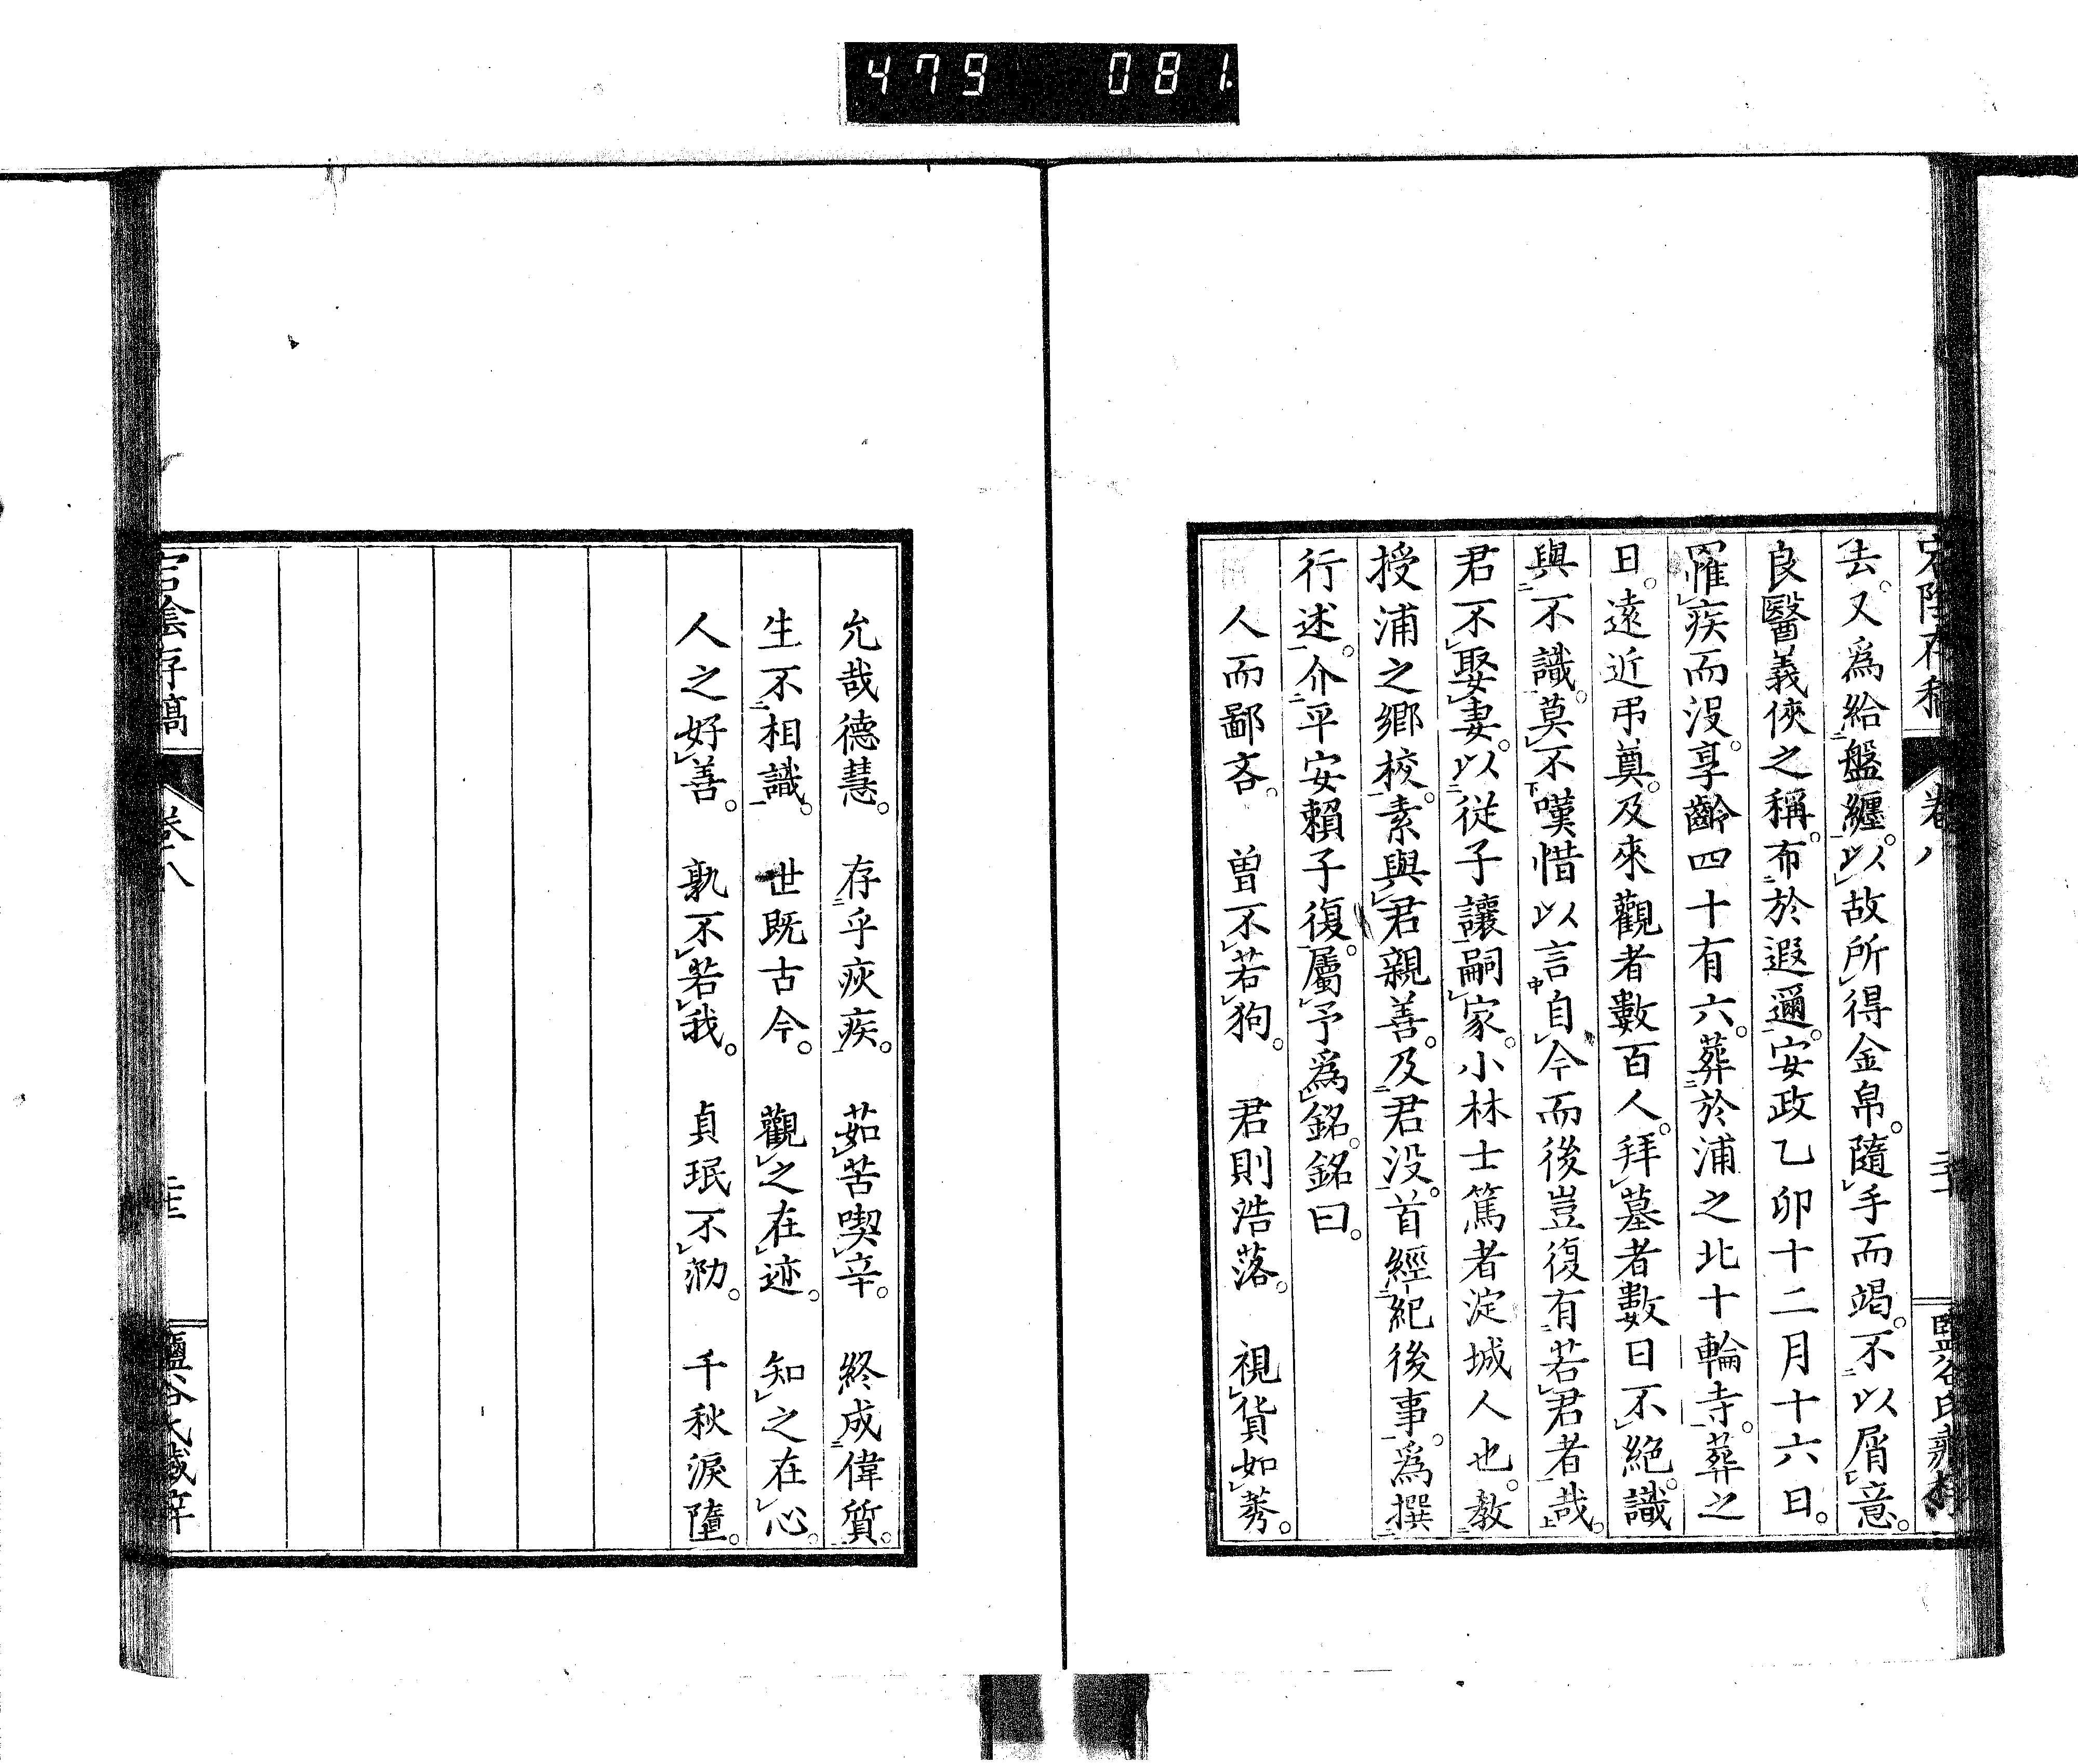 479 081
宕陰存稿 卷八
去。又爲給盤纏。以故所得金帛。隨手而竭。不以屑意。
良醫義俠之稱。布於遐邇。安政乙卯十二月十六日。
罹疾而沒。享齡四十有六。葬於浦之北十輪寺。葬之
日。遠近弔奠。及來觀者數百人。拜墓者數日不絕。識
與不識。莫不嘆惜以言自今而後豈復有若君者哉。
君不娶妻。以從子讓嗣家。小林士篤者淀城人也。教
授浦之鄉校。素與君親善。及君沒。首經紀後事。爲撰
行述。介平安賴子復。屬予爲銘。銘曰。
人而鄙吝。 曾不若狗。 君則浩落。 視貨如莠。
允哉德慧。 存乎疢疾。 茹苦喫辛。 終成偉質。
生不相識。 世既古今。 觀之在迹。 知之在心。
人之好善。 孰不若我。 貞珉不泐。 千秋淚墮。
宕陰存稿 卷八